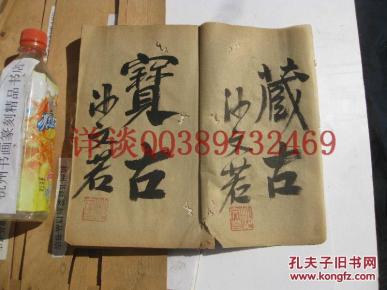 藏古
沙文若
寳古
沙文若
详谈QQ389732469
杭州书画篆刻精品书店
孔夫子旧书网
www.kongfz.com